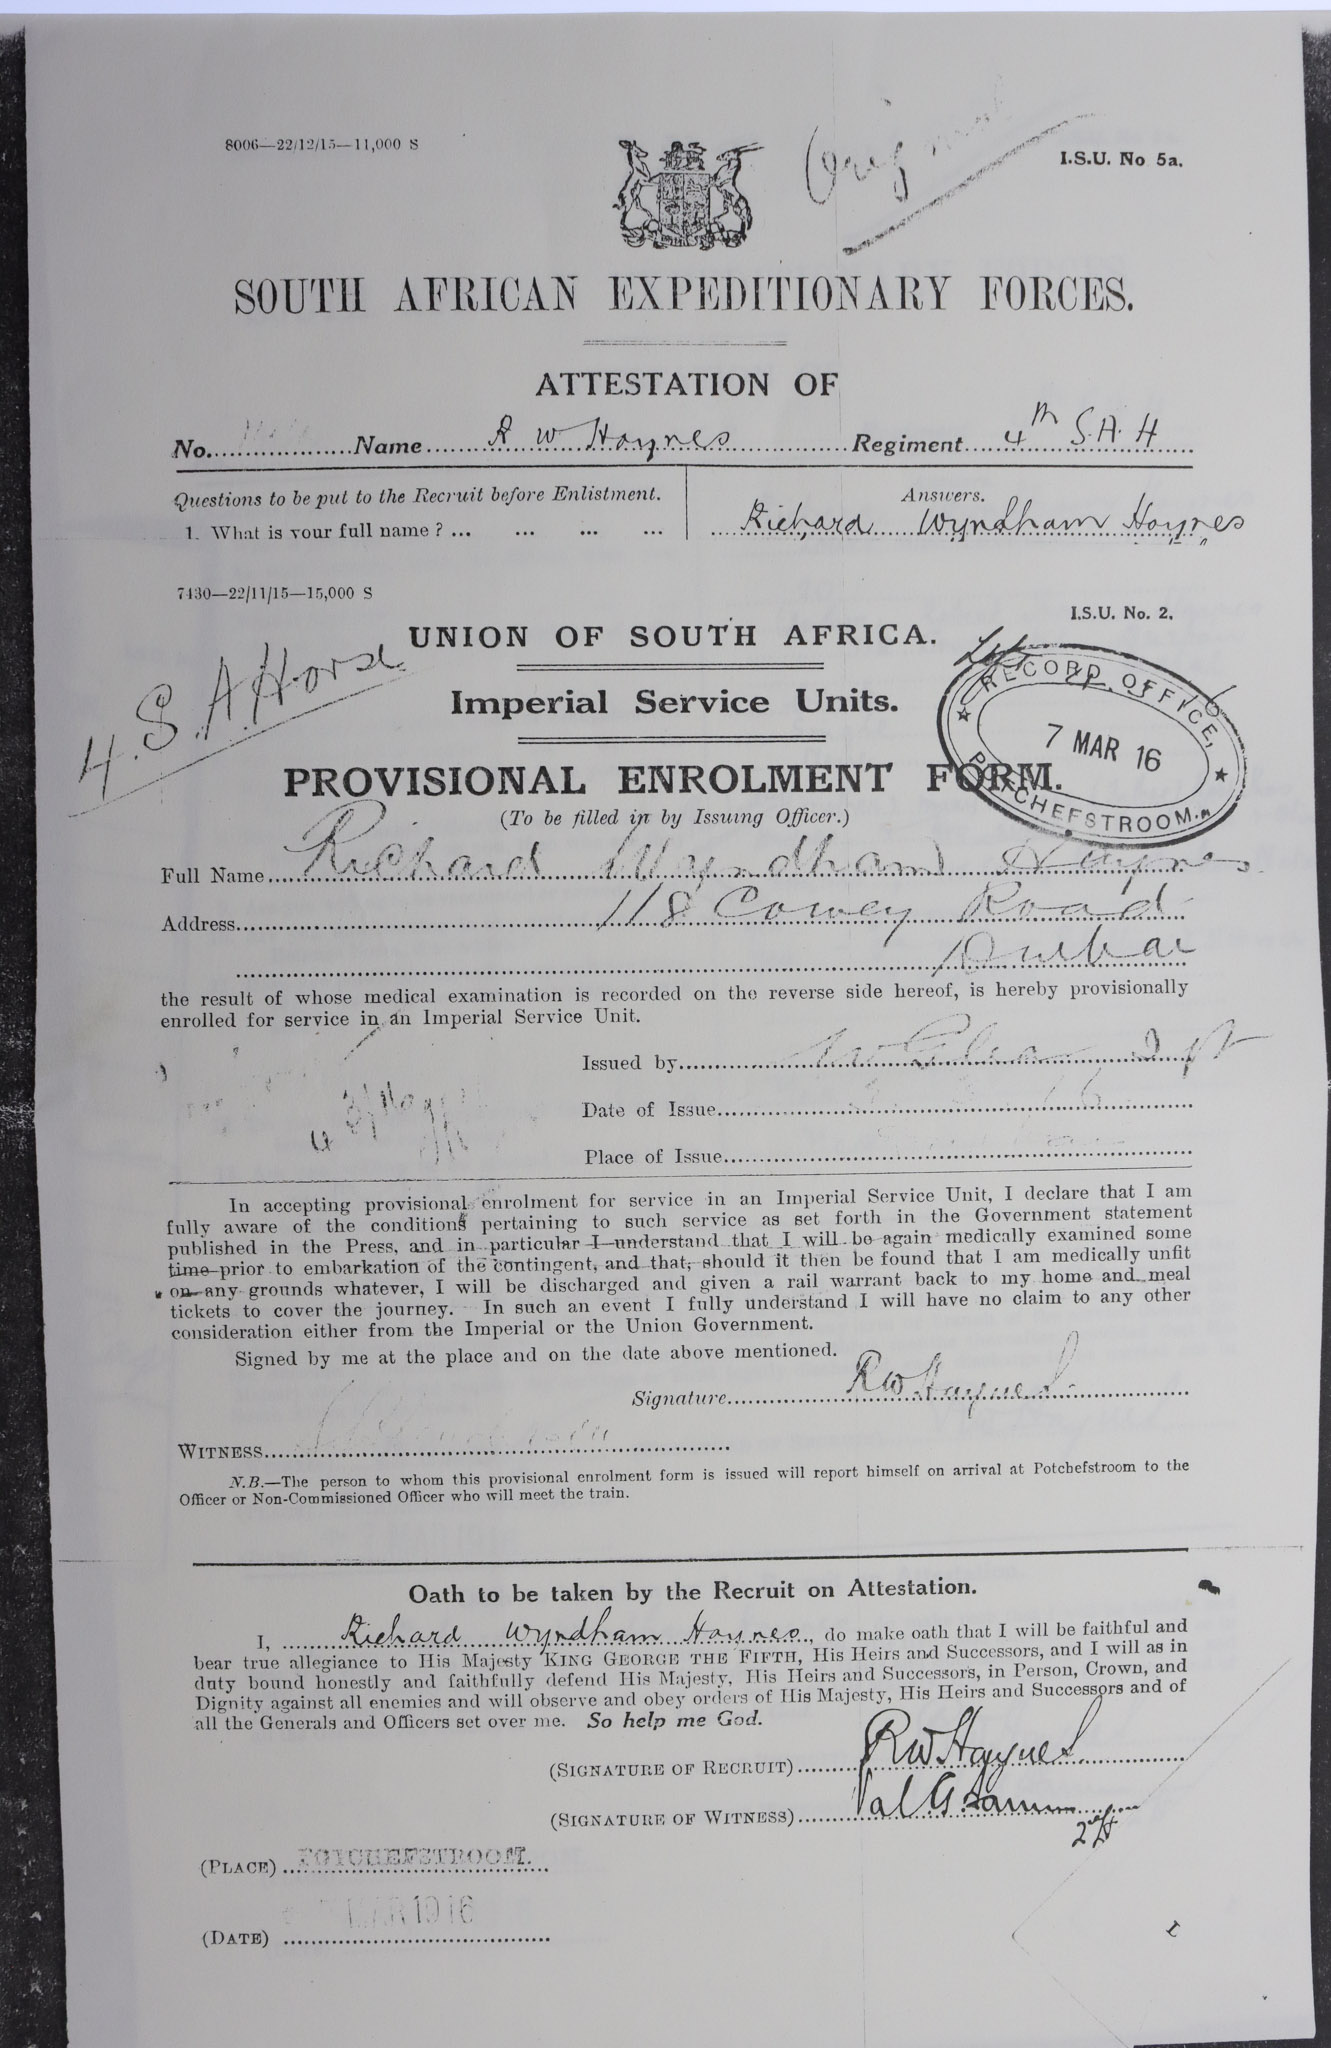 8006—22/12/15—11,000 S
Original
I.S.U. No 5a.
SOUTH AFRICAN EXPEDITIONARY FORCES.
ATTESTATION OF
No. Name R W Haynes Regiment 4th S.A.H
Questions to be put to the Recruit before Enlistment.
Answers.
1. What is your full name ? ... ... ... ... Richard Wyndham Haynes
7430—22/11/15—15,000 S
I.S.U. No. 2.
UNION OF SOUTH AFRICA.
4. S. A Horse
Imperial Service Units.
RECORD OFFICE,
7 MAR 16
POTCHEFSTROOM.
PROVISIONAL ENROLMENT FORM.
(To be filled in by Issuing Officer.)
Full Name Richard Wyndham Haynes
Address 118 Cowey Road
Durban
the result of whose medical examination is recorded on the reverse side hereof, is hereby provisionally
enrolled for service in an Imperial Service Unit.
Issued by
Date of Issue
Place of Issue
In accepting provisional enrolment for service in an Imperial Service Unit, I declare that I am
fully aware of the conditions pertaining to such service as set forth in the Government statement
published in the Press, and in particular I understand that I will be again medically examined some
time prior to embarkation of the contingent, and that, should it then be found that I am medically unfit
on any grounds whatever, I will be discharged and given a rail warrant back to my home and meal
tickets to cover the journey. In such an event I fully understand I will have no claim to any other
consideration either from the Imperial or the Union Government.
Signed by me at the place and on the date above mentioned.
Signature RW Haynes
WITNESS
N.B.—The person to whom this provisional enrolment form is issued will report himself on arrival at Potchefstroom to the
Officer or Non-Commissioned Officer who will meet the train.
Oath to be taken by the Recruit on Attestation.
I, Richard Wyndham Haynes, do make oath that I will be faithful and
bear true allegiance to His Majesty KING GEORGE THE FIFTH, His Heirs and Successors, and I will as in
duty bound honestly and faithfully defend His Majesty, His Heirs and Successors, in Person, Crown, and
Dignity against all enemies and will observe and obey orders of His Majesty, His Heirs and Successors and of
all the Generals and Officers set over me. So help me God.
(SIGNATURE OF RECRUIT) RW Haynes
(SIGNATURE OF WITNESS) Val G.
(PLACE) POTCHEFSTROOM.
(DATE) MAR 1916